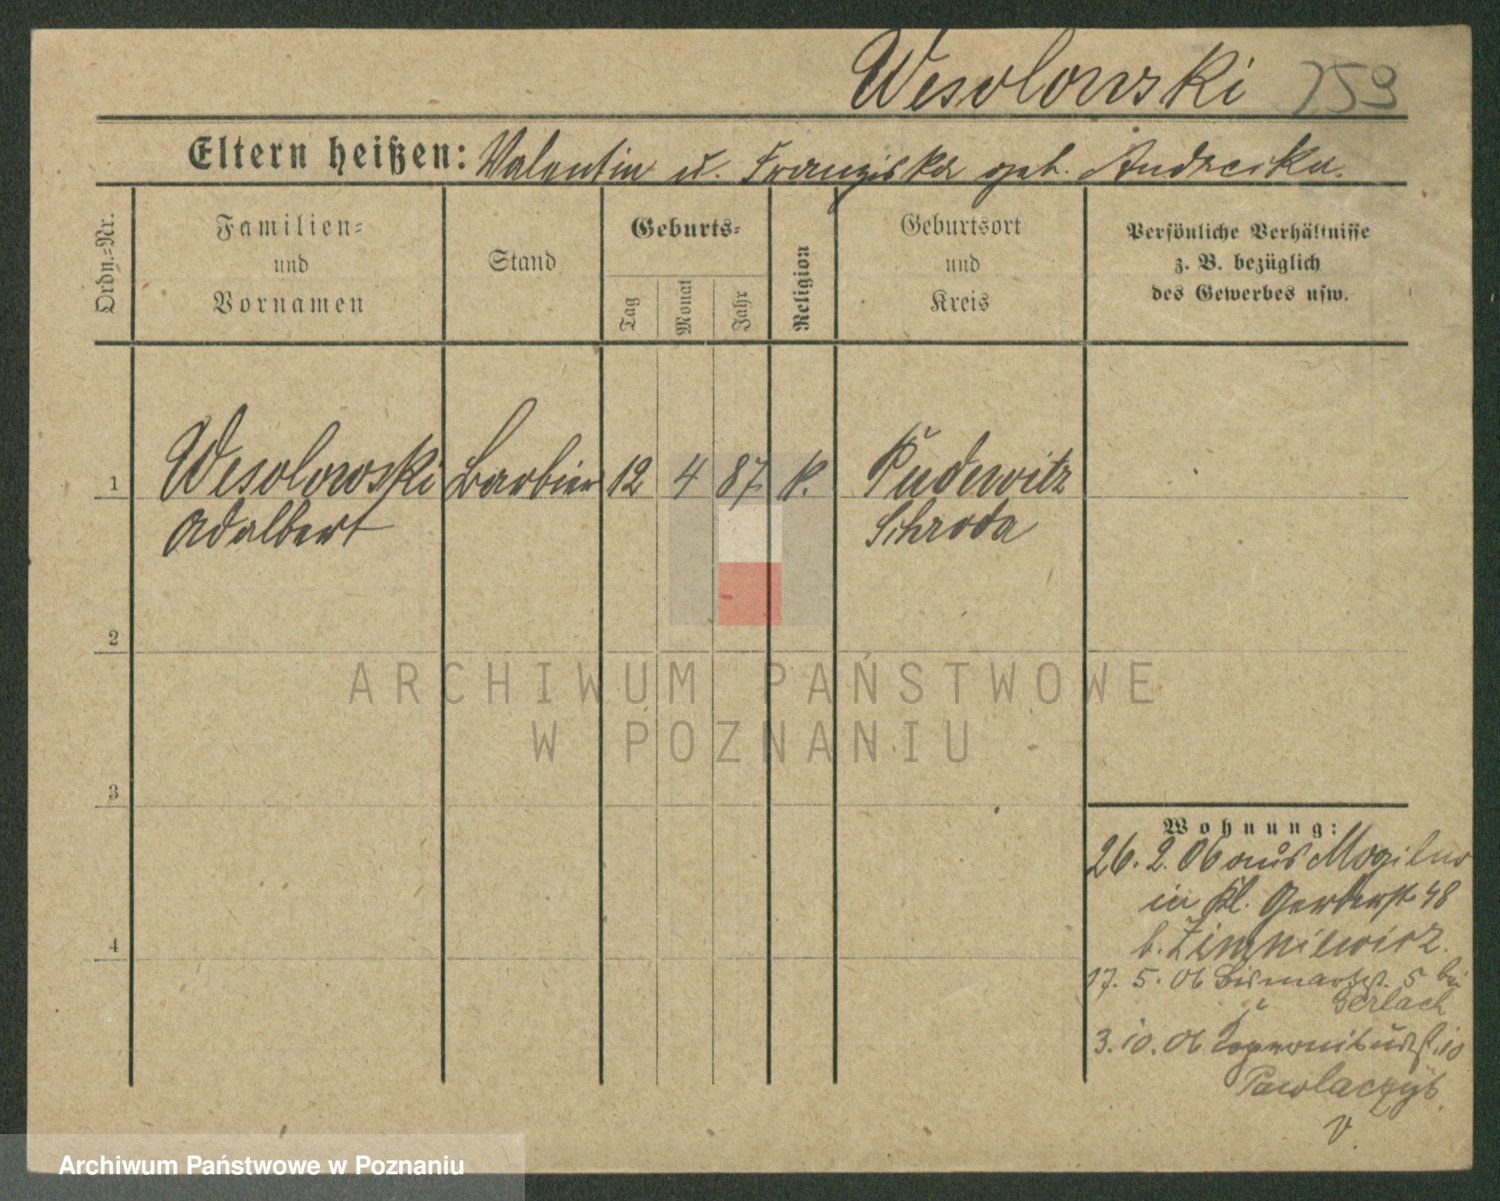 Wesolowski 759
Eltern heißen: Valentin u. Franziska geb. Andrecka.
Ordn.-Nr.
Familien-
und
Vornamen
Stand
Geburts-
Tag
Monat
Jahr
Religion
Geburtsort
und
Kreis
Persönliche Verhältnisse
z. B. bezüglich
des Gewerbes usw.
1 Wesolowski Barbier 12 4 87 k. Pudewitz
Adalbert Schroda
2
ARCHIWUM PAŃSTWOWE
W POZNANIU
3
Wohnung:
26. 2. 06 aus Mogilno
in Kl. Gerberst. 48
b.
4
17. 5. 06 Bismarckst. 5 bei
Gerlach
3. 10. 06 10
v.
Archiwum Państwowe w Poznaniu